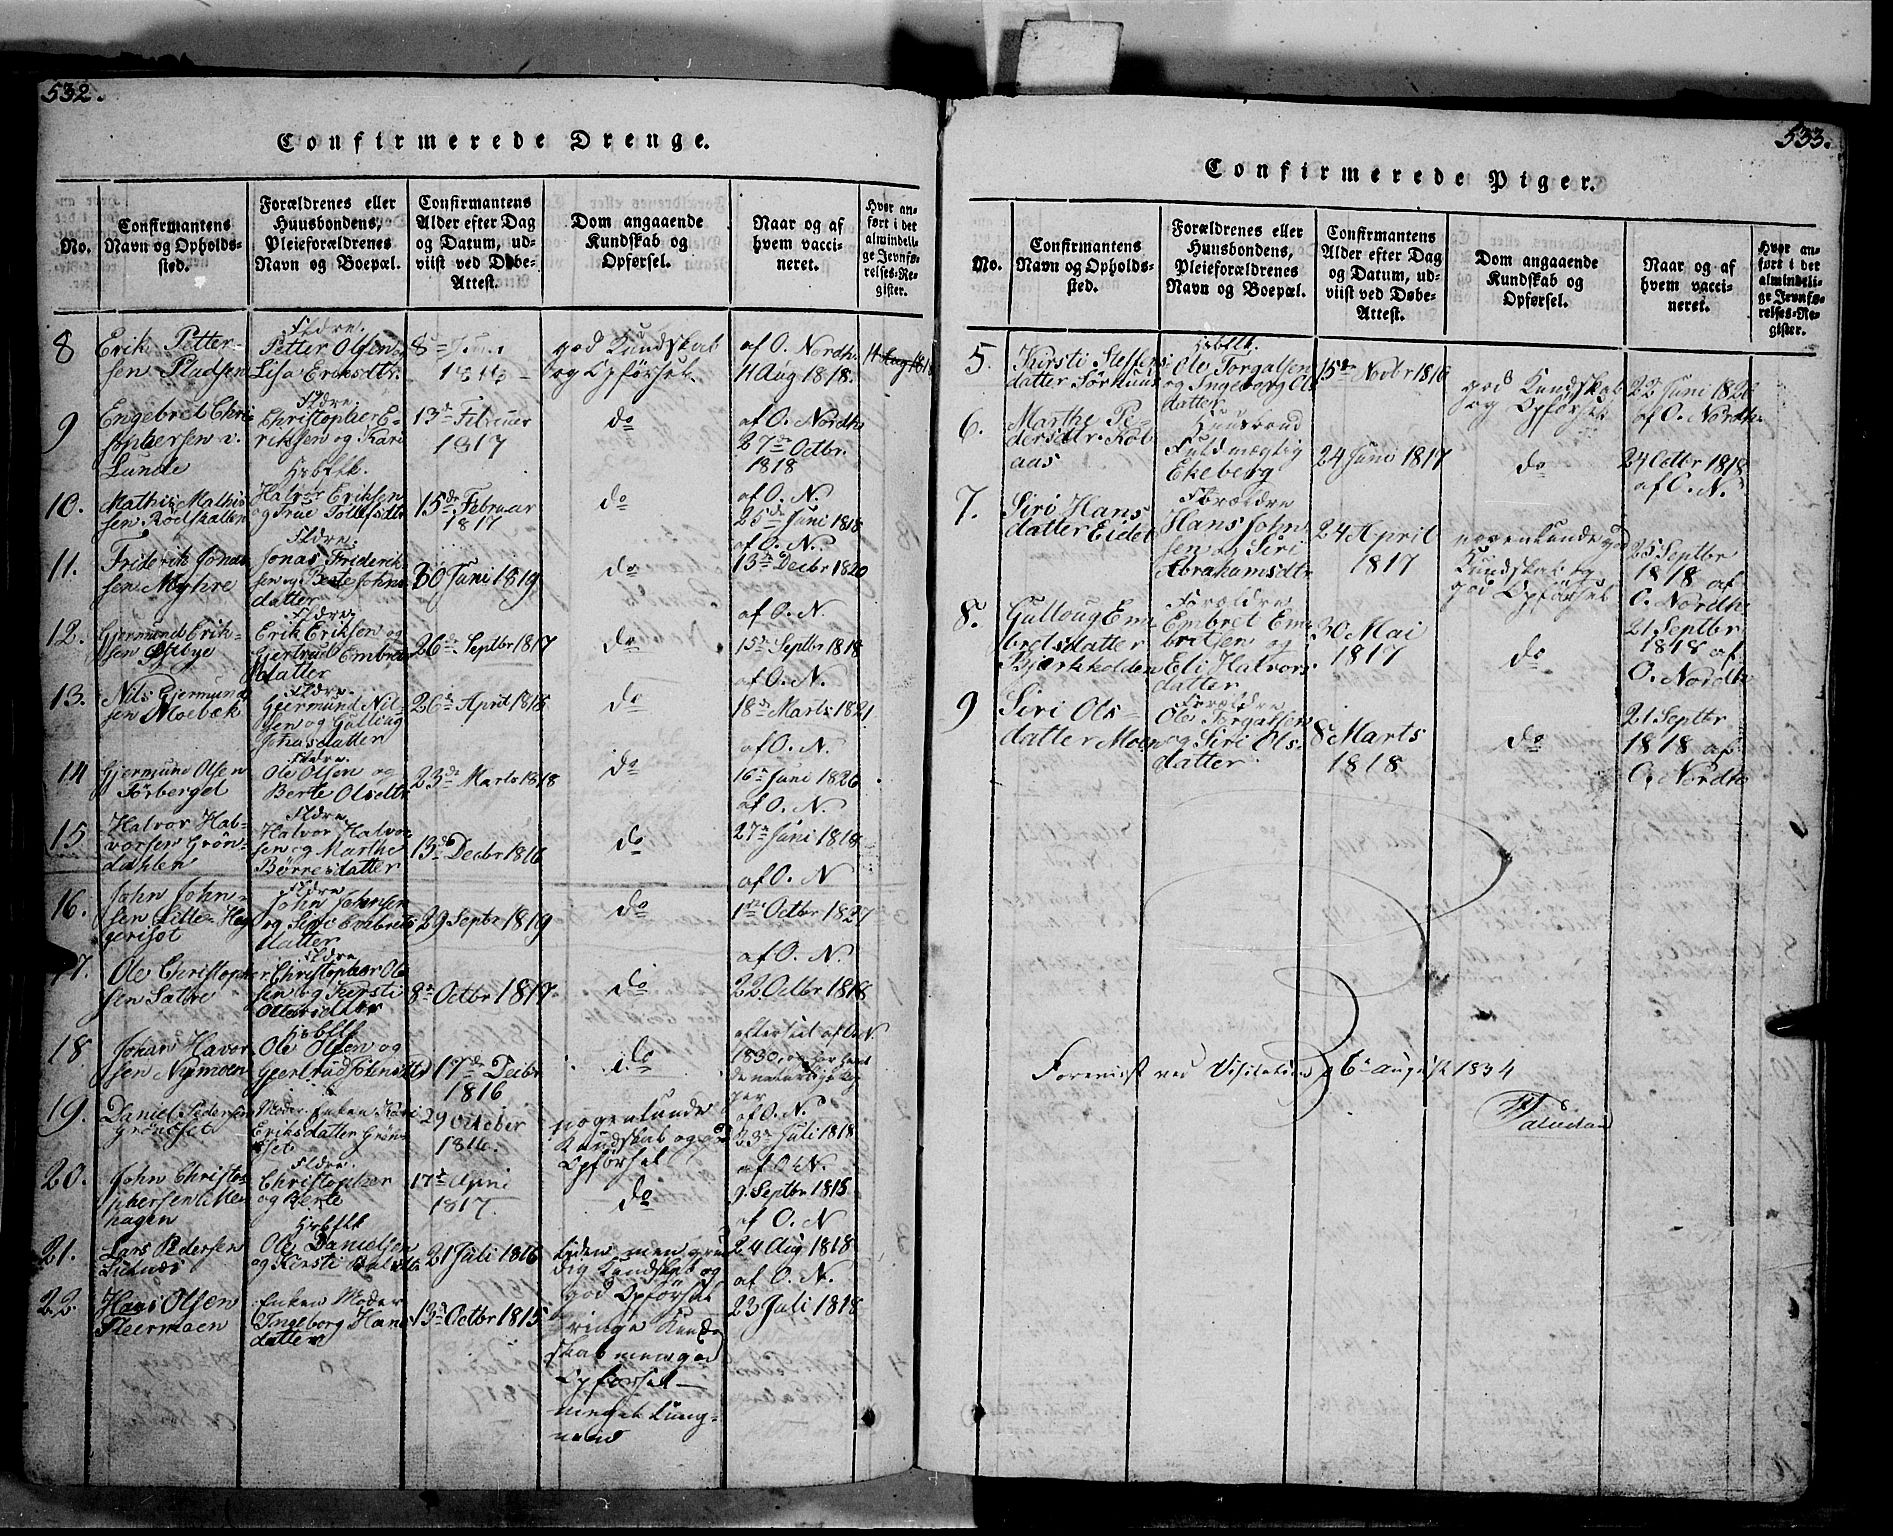 532.
Confirmerede Drenge.
No.
Confirmantens
Navn og Opholds-
sted.
Forældrenes eller
Huusbondens,
Pleieforældrenes
Navn og Boepæl.
Confirmantens
Alder efter Dag
og Datum, ud-
viist ved Døbe-
Attest.
Dom angaaende
Kundskab og
Opførsel.
Naar og af
hvem vacci-
neret.
Hvor an-
ført i det
almindeli-
ge Jevnfø-
relses-Re-
gister.
8
Erik Petter-
sen Pladsen
Petter Olsen
Lisa Eriksdtr.
8
god Kundskab
og Opførsel.
af O. Nordh.
11 Aug 1818.
11 Aug 1818
9
Engebret Chri-
Lunde
Fldre.
Christopher E-
riksen og Kari
13de Februar
1817
do
af O. Nordh
27de Octbr.
1818
10.
Mathis Mathi-
sen Rødskallen
Halvor Eriksen
15de Februar
1817
do
af O. N.
25de Juni 1818
11.
Friderik Jonas-
sen Myhre
Fldre.
Jonas Friderik-
sen og Berte Johns-
datter
30 Juni 1819
do
af O. N.
13de Decbr 1820
12.
Gjermund Erik-
sen
Fldre.
Erik Eriksen og
Gjertrud Embrets
datter
26de Septbr 1817
do
af O. N.
15de Septbr 1818
13.
Nils Gjermund
sen Moebek
Fldre.
Gjermund Nil-
sen og Gulloug
Jonasdatter
26de April 1818
do
af O. N.
18de Marts 1821
14
Gjermund Olsen
Fldre.
Ole Olsen og
Berte Olsdtr
23de Marts 1818
do
af O. N.
16de Juni 1826
15
Halvor Hal-
vorsen Grøn-
dahlen
Fldre.
Halvor Halvor-
sen og Marthe
Børresdatter
13de Decbr 1816
do
af O. N.
27de Juni 1818
16.
John John-
sen Lille Ha-
Fldre.
John Johnsen
og Siri Embrets
datter
29 Septbr 1819
do
af O. N
1ste Octbr 1827
17.
Ole Christopher
sen Sætre
Fldre.
Christopher Ol-
sen og Kirsti
8de Octbr 1817
do
af O. N.
22 Octbr 1818
18
Johan Havor-
sen Nymoen
Ole Olsen og
17de Decbr
1816
do
1830
19.
Daniel Pedersen
Grønset
Moder Enken Kari
Eriksdatter Grøn-
set
29 October
1816.
nogenlunde
Kundskab og god
Opførsel
af O. N.
23de Juli 1818
20.
John Christo-
phersen Litten
hagen
Fldre.
Christopher
og Berte
17de
1817.
do
af O. N.
9 Septbr 1818
21.
Lars Pedersen
Ole Danielsen
og Kirsti
21 Juli 1816
liden men
Kundskab og
god Opførsel
af O. N
24 Aug 1818
22.
Hans Olsen
Enken Moder
Ingeborg Hans
datter
13de Octbr 1815
ringe Kund-
skab men god
Opførsel
af O. N.
23 Juli 1818
533.
Confirmerede Piger.
No.
Confirmantens
Navn og Opholds-
sted.
Forældrenes eller
Huusbondens,
Pleieforældrenes
Navn og Boepæl.
Confirmantens
Alder efter Dag
og Datum, ud-
viist ved Døbe-
Attest.
Dom angaaende
Kundskab og
Opførsel.
Naar og af
hvem vacci-
neret.
Hvor an-
ført i det
almindeli-
ge Jevnfø-
relses-Re-
gister.
5.
Kirsti Steffens
datter
Ole Torgalsen
og Ingeborg Ols
datter
15de Novbr 1816
god Kundskab
og Opførsel
22 Juni 1820
af O. Nordh
6.
Marthe Pe-
dersdtr. Kob
aas
Huusbond
Fuldmægtig
Ekeberg
24 Juni 1817
do
24 Octbr 1818
af O. N.
7.
Siri Hans
datter Eidet
Forældre
Hans John-
sen og Siri
Abrahamsdtr
24 April
1817
nogenlunde god
Kundskab og
god Opførsel
25 Septbr
1818 af
O. Nordh
8.
Gulloug Em
bretsdatter
Bjerkholden
Forældre
Embret Em-
bretsen og
Eli Halvors
datter
30 Mai
1817
do
21 Septbr
1818 af
O. Nordh
9
Siri Ols-
datter Moen
Forældre
Ole Torgalsen
og Siri Ols-
datter
8 Marts
1818
do
21 Septbr
1818 af
O. Nordh
Foreviist ved Visitatsen 6te August 1834
Paludan